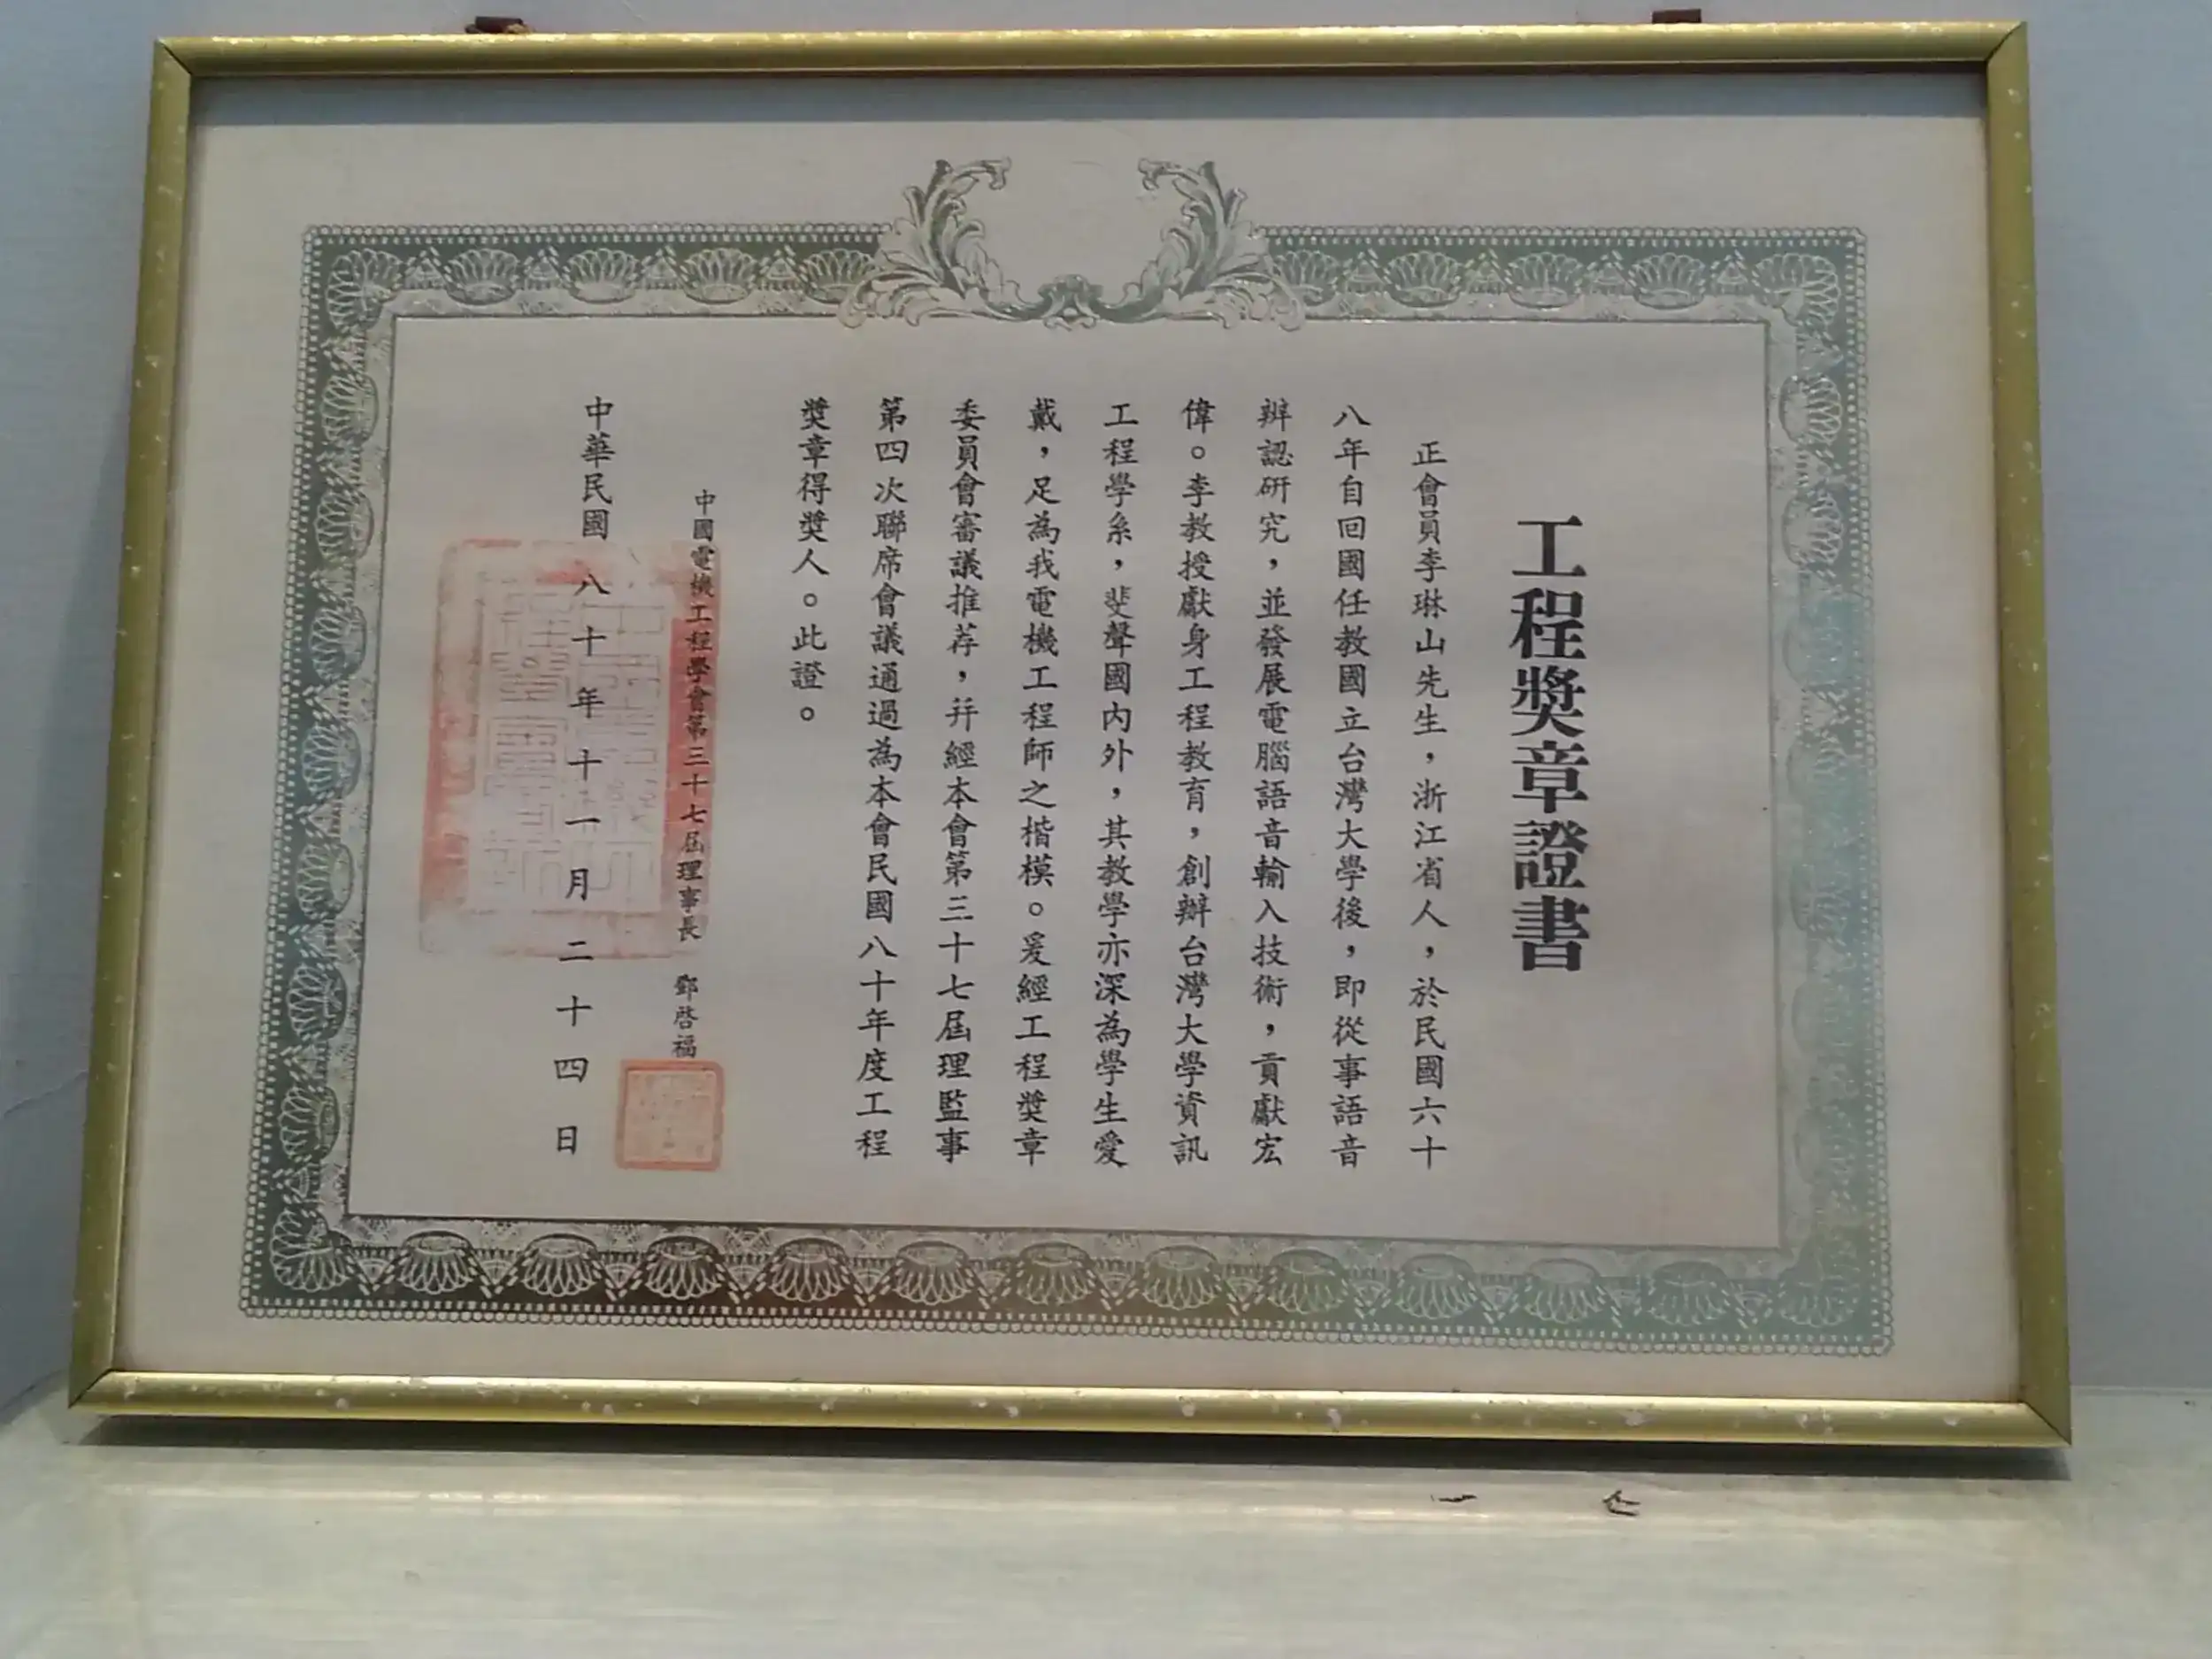 工程獎章證書
正會員李琳山先生，浙江省人，於民國六十
八年自回國任教國立台灣大學後，即從事語音
辨認研究，並發展電腦語音輸入技術，貢獻宏
偉。李教授獻身工程教育，創辦台灣大學資訊
工程學系，斐聲國內外，其教學亦深為學生愛
戴，足為我電機工程師之楷模。爰經工程獎章
委員會審議推荐，并經本會第三十七屆理監事
第四次聯席會議通過為本會民國八十年度工程
獎章得獎人。此證。
中國電機工程學會第三十七屆理事長 鄧啓福
中華民國八十年十一月二十四日